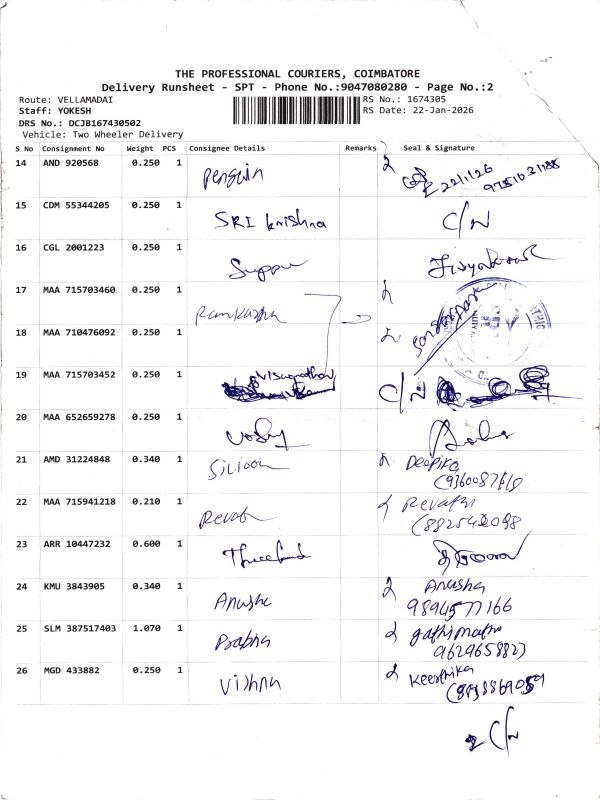 THE PROFESSIONAL COURIERS, COIMBATORE
Delivery Runsheet - SPT - Phone No.:9047080280 - Page No.:2
Route: VELLAMADAI
RS No.: 1674305
Staff: YOKESH
RS Date: 22-Jan-2026
DRS No.: DCJB167430502
Vehicle: Two Wheeler Delivery
S No Consignment No Weight PCS Consignee Details Remarks Seal & Signature
14 AND 920568 0.250 1 Penguin 22/1/26
15 CDM 55344205 0.250 1 SRI krishna C/N
16 CGL 2001223 0.250 1
17 MAA 715703460 0.250 1
18 MAA 710476092 0.250 1
19 MAA 715703452 0.250 1 C/N
20 MAA 652659278 0.250 1
21 AMD 31224848 0.340 1 Deepika
22 MAA 715941218 0.210 1 Revathi
23 ARR 10447232 0.600 1
24 KMU 3843905 0.340 1 Anusha
9894577166
25 SLM 387517403 1.070 1 Prabha
26 MGD 433882 0.250 1 Vishna Keerthika
C/N